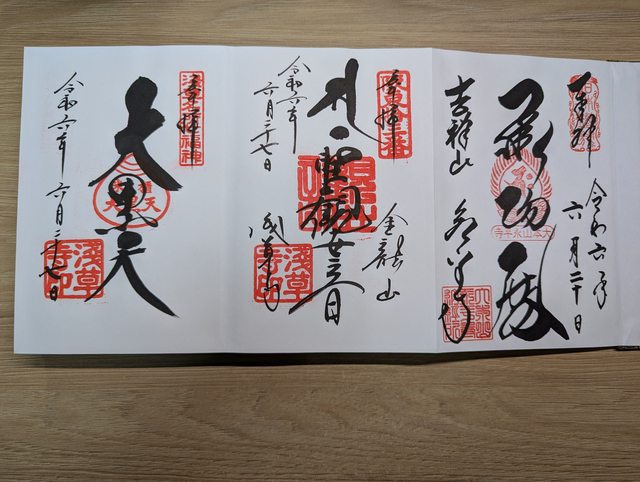 奉拝
令和六年
六月二十日
承陽殿
吉祥山 永平寺
坂東十三番
奉拝
金龍山
聖觀世音
浅草寺
浅草寺印
令和六年
六月二十七日
浅草名所福神
奉拝
大黒天
令和六年 六月二十七日
浅草寺印